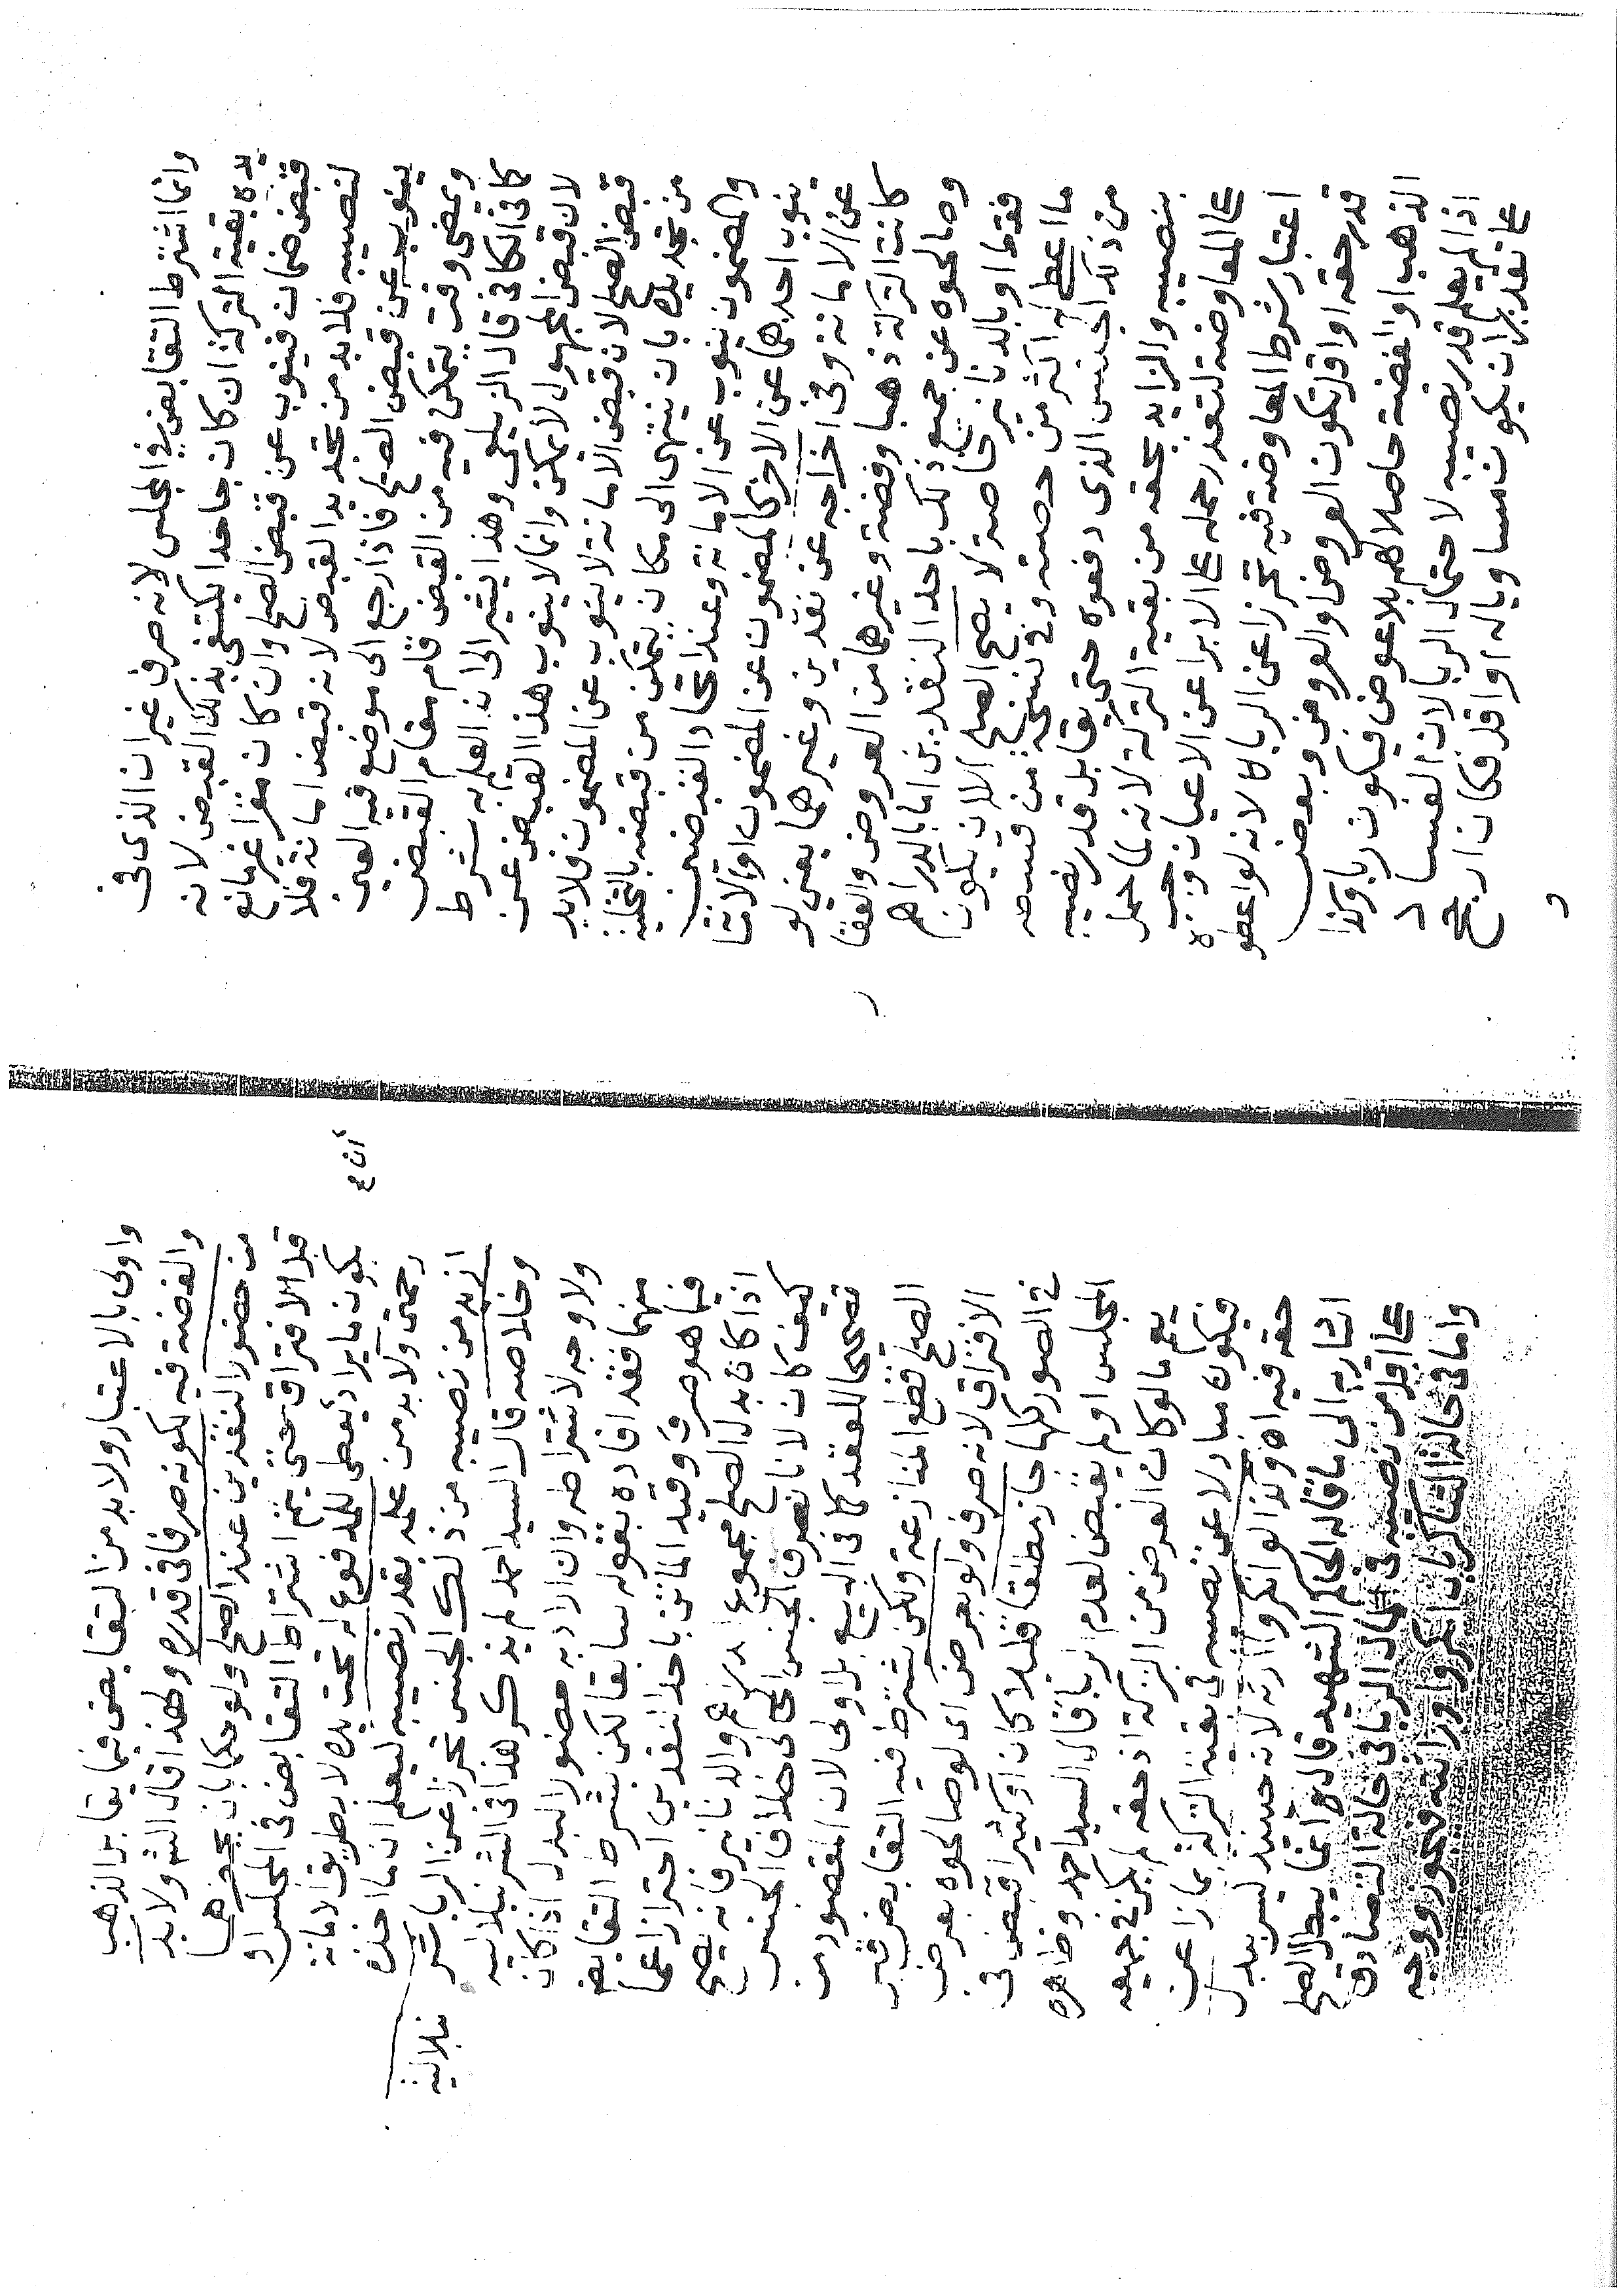 وانما اشترط التقابض في المجلس لانه صرف غير ان الذى فى
يده بقية التركة ان كان جاحدا يكتفى بذلك القبض لانه
قبض ضمان فينوب عن قبض الصلح وان كان مقرا غير مانع
لنصيبه فلا بد من تجديد القبض لانه قبض امانة فلا
ينوب عن قبض الصلح فاذا رجع الى موضع فيه العين
ويمضى وقت يتمكن فيه من القبض قام مقام القبض
كما فى الكافى قال الزيلعى وهذا يشير الى ان العلم به شرط
لان قبض المجهول لا يمكن وانما لا ينوب هذا القبض عن
قبض الصلح لان قبض الامانة لا ينوب عن المضمون فلا بد
من تجديده بان ينتهى الى مكان يتمكن من قبضه بالتخلية
والمضمون ينوب عن الامانة وعند اتحاد القبضين
ينوب احدهما عن الاخر كالمضمون عن المضمون او الامانة
عن الامانة وفى اخراجه عن نقدين وغيرهما يعنى لو
كانت التركة ذهبا وفضة وغيرهما من العروض والعقا
وصالحوه عن جميع ذلك باحد النقدين اما بالدراهم
فقط او بالدنانير خاصة لا يصح الصلح الا ان يكون
ما اعطى له اكثر من حصته وفى نسخة من قسمه
من ذلك الجنس الذى دفعوه حتى يقابل قدر نصيبه
بنصيبه والزايد بحقه من بقية التركة لانه لما حمل
على المعاوضة لتعذر حمله على الابرا عن الاعيان وجب
اعتبار شرط المعاوضة فيه تحرزا عن الربا كا لانه لو اعطوه
قدر حقه او اقل تكون العروض والعروض وبعض
الذهب او الفضة حاصلا لهم بلا عوض فيكون ربا وكذا
اذا لم يعلم قدر نصيبه لاحتمال الربا لان الفساد
على تقديران يكون مساويا له او اقل فكان ارجح
و
واولى بالاعتبار ولا بد من التقابض فيما يقابل الذهب
والفضة فيه لكونه صرفا فى قدره ولهذا قال الش ولا بد
من حضور النقدين عند الصلح ولو حكما بان يحضرهما
قبل الافتراق حتى يتم اشتراط التقابض فى المجلس او
يكون ما يراد يعطى للمدفوع له تحت يده لا بطريق الامانة
أن ع
رحمتى ولا بد من علمه بقدر نصيبه ليعلم ان ما اخذه
ازيد من نصيبه من ذلك الجنس تحرزا عن الربا شر
نبلالية
وخلاصه قال السيد احمد لم يذكر هذا فى الشرنبلالية
ولا وجه لاشتراطه وان اراد به حضور البدل اذا كان
منهما فقد افاده بقوله سابقا لكن بشرط التقابض
فيما هو صرف وقيد المتن باحد النقدين احترازا عما
اذا كان بدل الصلح مجموع الدراهم والدنانير فانه يصح
كيف كان لانا نصرف الجنس الى خلاف الجنس
تصحيحا للعقد كما فى البيع بل اولى لان المقصود من
الصلح قطع المنازعة ولكن يشترط فيه التقابض قبل
الافتراق لانه صرف ولو بعرض اى لو صالحوه بعرض
فى الصور كلها جاز مطلقا قليلا كان او كثيرا قبض فى
المجلس او لم يقبض لعدم الربا قال السيد احمد وظاهره
يعم ما لو كان العرض من التركة اذ حقه لم يكن فى جميعه
فيكون مبادلا عن نصيبه فى بقية التركة بما زاد عن
حقه فيه اه وكذا لو انكروا ارثه لانه حينئذ ليس ببدل
اشار به الى ما قاله الحاكم الشهيد قال ع انما يبطل الصلح
على اقل من نصيبه فى مال الربا فى حالة التصادق
واما فى حالة التناكر بان انكروا وراثته فيجوز ووجه